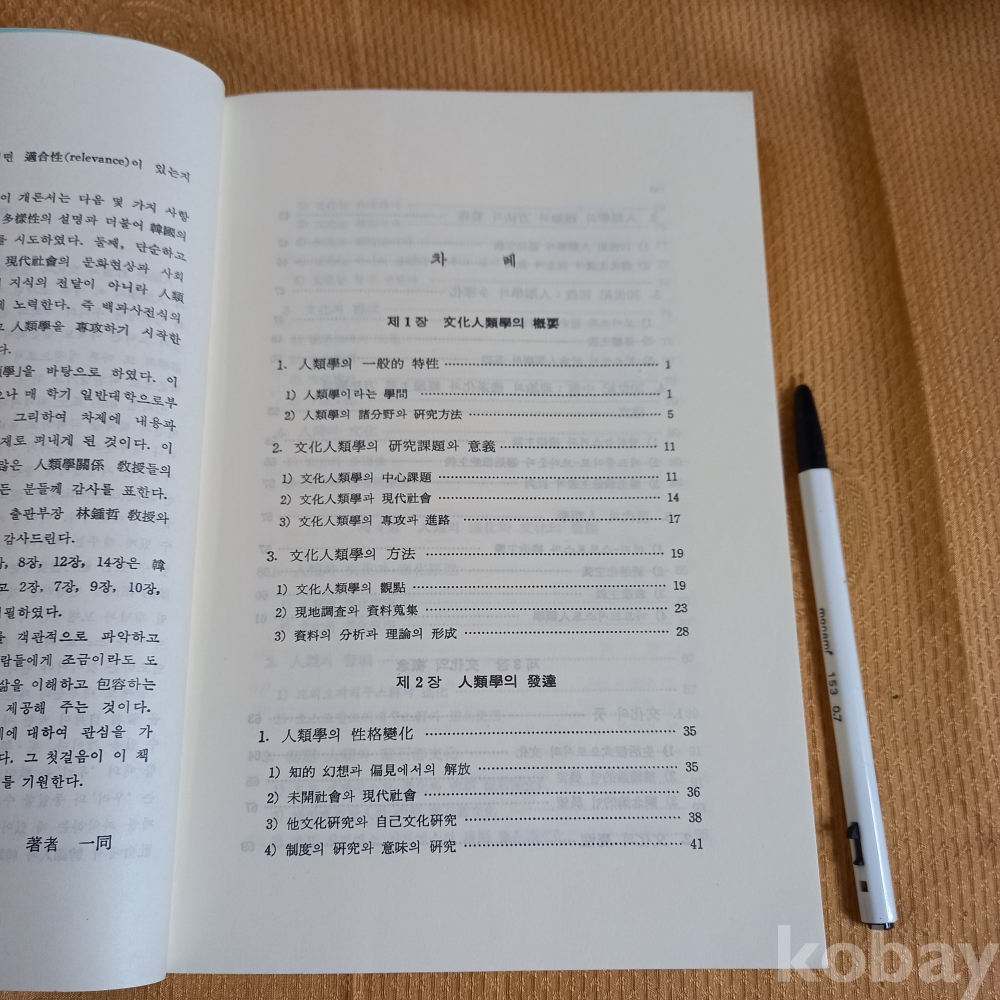 면 適合性(relevance)이 있는지
이 개론서는 다음 몇 가지 사항
多樣性의 설명과 더불어 韓國의
를 시도하였다. 둘째, 단순하고
現代社會의 문화현상과 사회
지식의 전달이 아니라 人類
노력한다. 즉 백과사전식의
人類學을 專攻하기 시작한
다.
學」을 바탕으로 하였다. 이
나 매 학기 일반대학으로부
그리하여 차제에 내용과
제로 펴내게 된 것이다. 이
많은 人類學關係 敎授들의
든 분들께 감사를 표한다.
출판부장 林鍾哲 敎授와
감사드린다.
8장, 12장, 14장은 韓
고 2장, 7장, 9장, 10장,
필하였다.
를 객관적으로 파악하고
람들에게 조금이라도 도
삶을 이해하고 包容하는
제공해 주는 것이다.
에 대하여 관심을 가
다. 그 첫걸음이 이 책
를 기원한다.
著者 一同
차 례
제 1 장 文化人類學의 槪要
1. 人類學의 一般的 特性 1
1) 人類學이라는 學問 1
2) 人類學의 諸分野와 硏究方法 5
2. 文化人類學의 硏究課題와 意義 11
1) 文化人類學의 中心課題 11
2) 文化人類學과 現代社會 14
3) 文化人類學의 專攻과 進路 17
3. 文化人類學의 方法 19
1) 文化人類學의 觀點 19
2) 現地調査와 資料蒐集 23
3) 資料의 分析과 理論의 形成 28
제 2 장 人類學의 發達
1. 人類學의 性格變化 35
1) 知的 幻想과 偏見에서의 解放 35
2) 未開社會와 現代社會 36
3) 他文化硏究와 自己文化硏究 38
4) 制度의 硏究와 意味의 硏究 41
monami 153 0.7
kobay